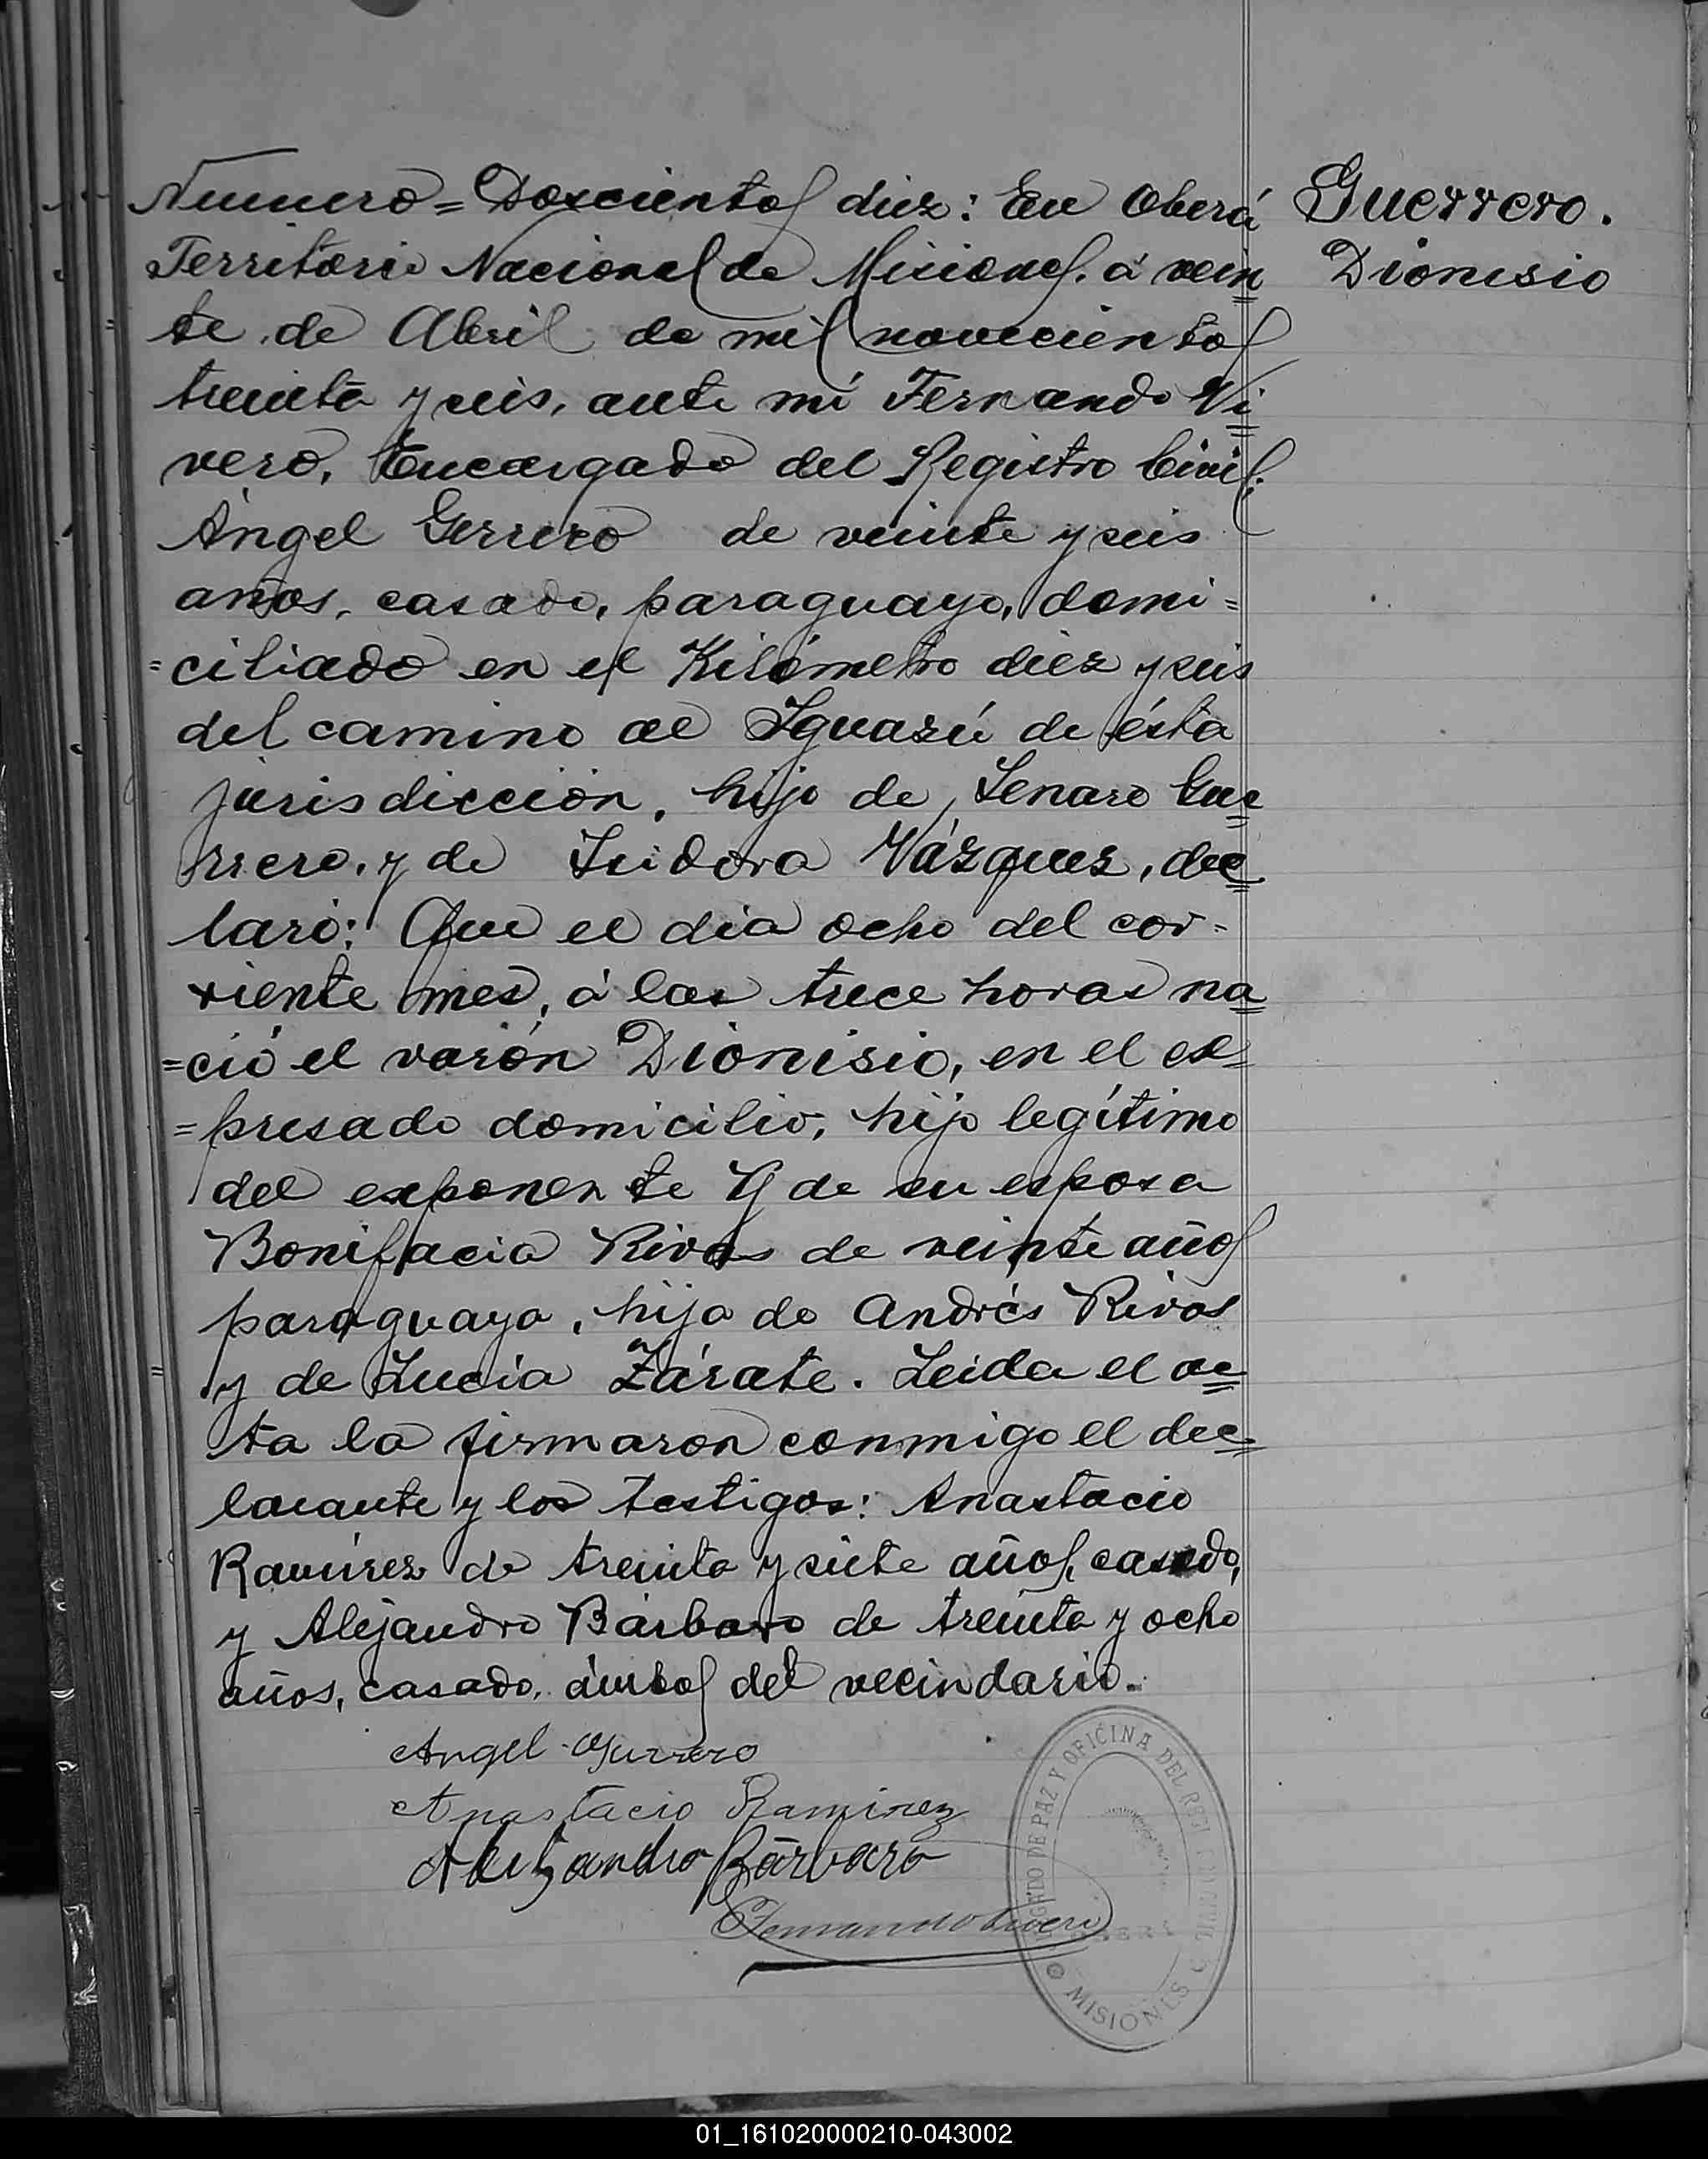 Número = Doscientos diez: En Oberá
Territorio Nacional de Misiones, á vein
te de Abril de mil novecientos
treinta y seis, ante mí Fernando Vi
vero, Encargado del Registro Civil;
Ángel Gerrero de veinte y seis
años, casado, paraguayo, domi=
=ciliado en el Kilómetro diez y seis
del camino al Iguazú de ésta
jurisdicción, hijo de Genaro Gue
rrero, y de Isidora Vázquez, dec
laró: Que el día ocho del cor-
riente mes, á las trece horas na
=ció el varón Dionisio, en el ex
=presado domicilio, hijo legítimo
del exponente y de su esposa
Bonifacia Rivas de veinte años
paraguaya, hija de Andrés Rivas
y de Lucía Zárate. Leida el ac
ta la firmaron conmigo el dec
larante y los testigos: Anastacio
Ramírez de treinta y siete años, casado,
y Alejandro Bárbaro de treinta y ocho
años, casado, ámbos del vecindario.
Angel Gerrero
Anastacio Ramirez
Alejandro Bárbaro
Fernando Vivero
Guerrero.
Dionisio
JUZGADO DE PAZ Y OFICINA DEL REGISTRO CIVIL
MISIONES
01_161020000210-043002